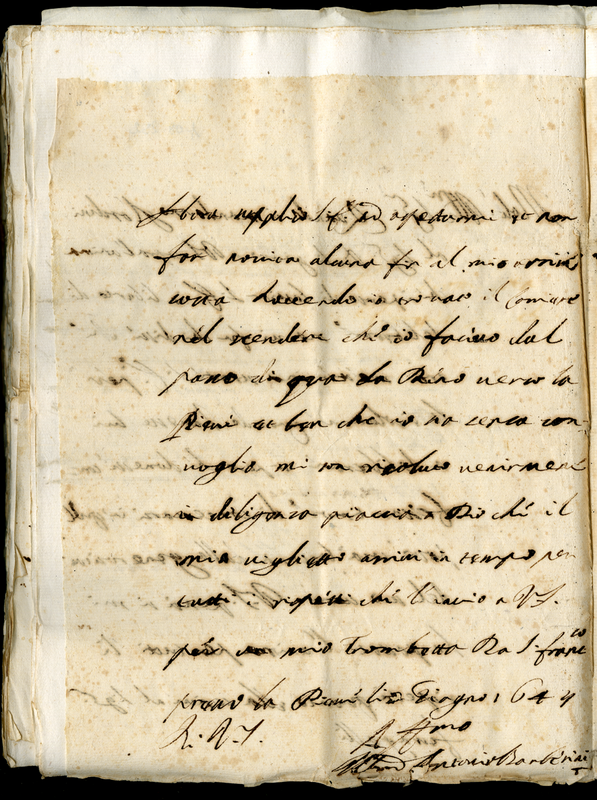 supplico aspettarmi et non
far novica alcuna fin al mio arrivo
costà havendo io trovato il Corriere
nel scendere che io facevo dal
passo di qua da Reno verso la
Pieve et ben che io sia senza con-
voglio mi son risoluto venirmene
in diligenza piaccia a Dio ché il
mio viglietto arrivi in tempo per
tutti i rispetti ché l'invio a V.S.
per un mio Trombetta Da S. franco
presso la Pieve li Giugno 1644
Di V.S.
Affmo
Antonio Barberini